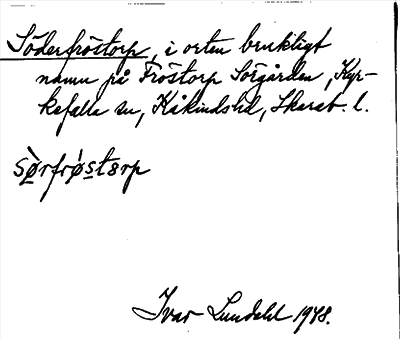 Söderfröstorp, i orten brukligt
namn på Fröstorp Sörgården, Kyr-
kefalla sn, Kåkinds hd, Skarab. l.
sø̀rfrǿstɐrp
Ivar Lundahl 1948.